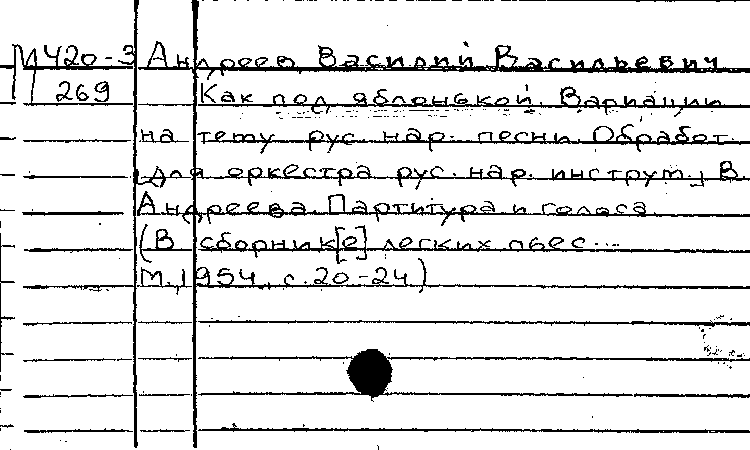 М 420-3 Андреев, Василий Васильевич
269 Как под яблонькой. Вариации
на тему рус. нар. песни. Обработ.
для оркестра рус. нар. инструм., В.
Андреева. Партитура и голоса.
(В сборник[е] легких пьес...
М., 1954, с. 20-24)